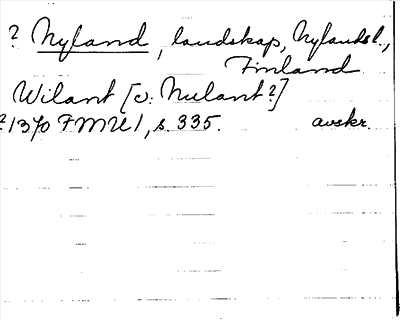 ? Nyland, landskap, Nylands l.,
Finland
Wilant [o: Nulant?]
? 1370 FMU 1, s. 335. avskr.